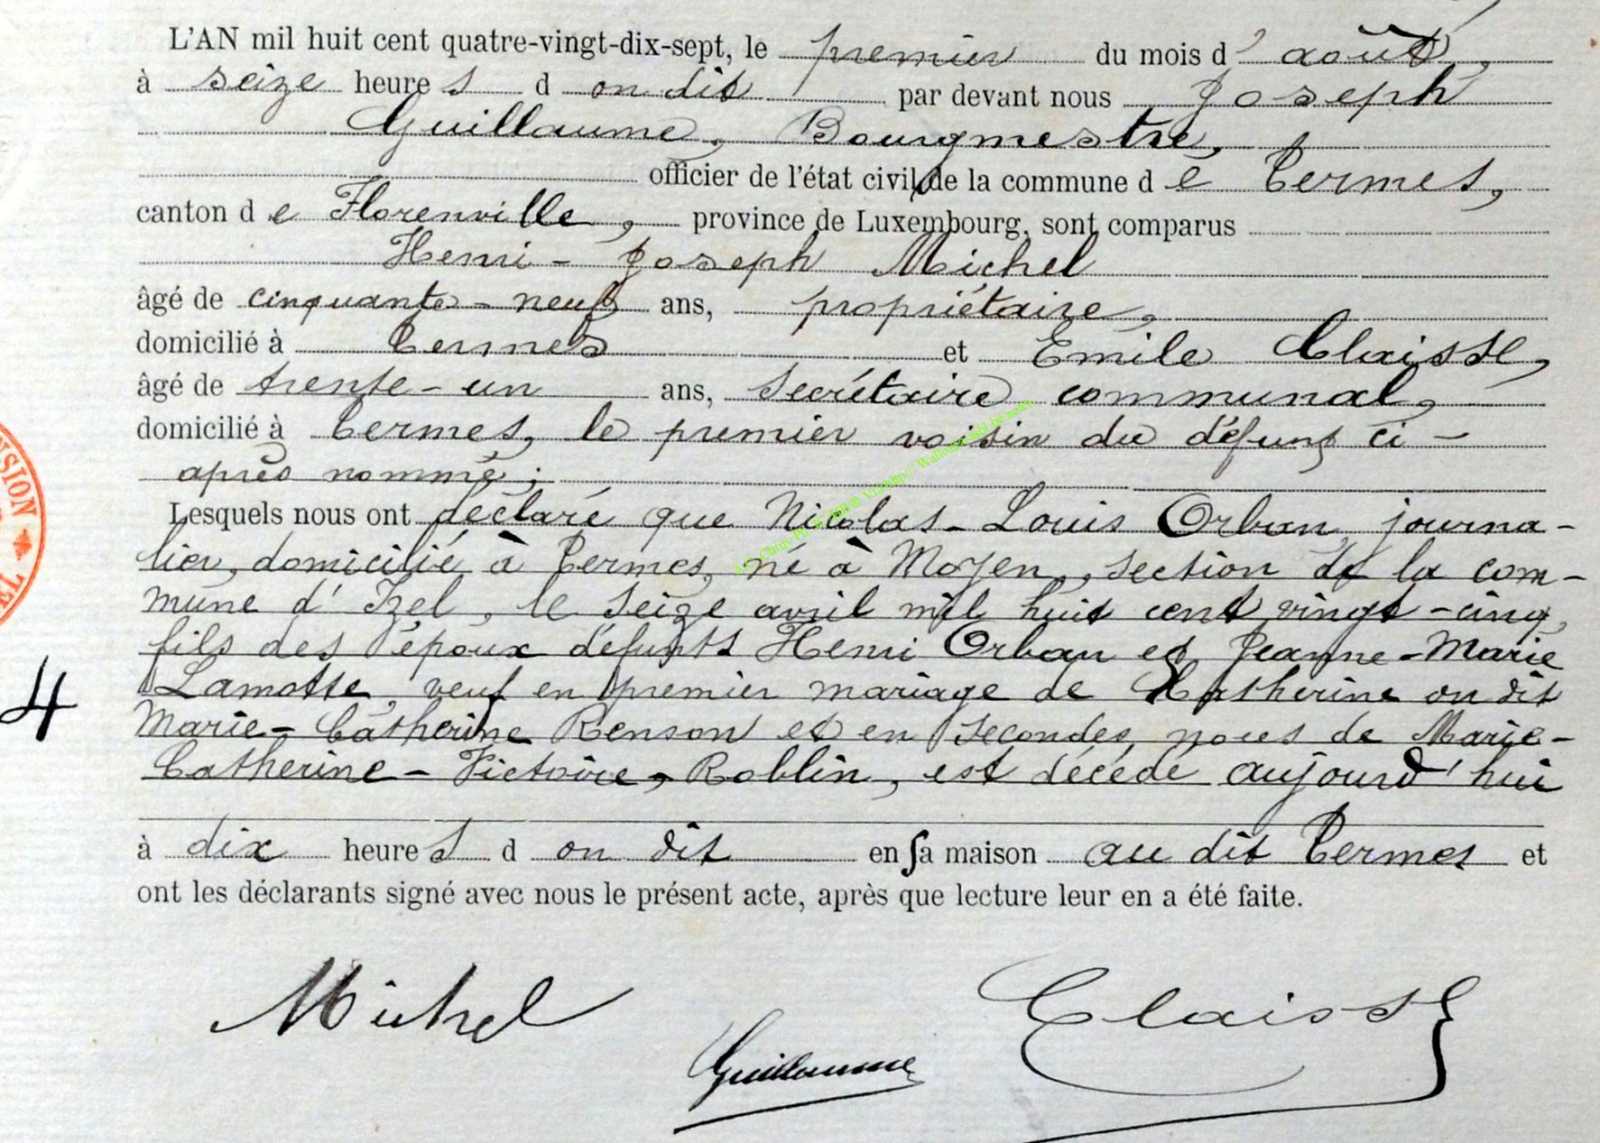 L'AN mil huit cent quatre-vingt-dix-sept, le premier du mois d'août,
à seize heure s d on dit par devant nous Joseph
Guillaume, Bourgmestre,
officier de l'état civil de la commune d e Termes,
canton d e Florenville, province de Luxembourg, sont comparus
Henri-Joseph Michel
âgé de cinquante-neuf ans, propriétaire,
domicilié à Termes et Emile Claisse,
âgé de trente-un ans, secrétaire communal,
domicilié à Termes, le premier voisin du défunt ci-
après nommé;
Lesquels nous ont déclaré que Nicolas-Louis Orban, journa-
lier, domicilié à Termes, né à Moyen, section de la com-
mune d'Izel, le seize avril mil huit cent vingt-cinq,
fils des époux défunts Henri Orban et Jeanne-Marie
Lamotte, veuf en premier mariage de Catherine on dit
Marie-Catherine Renson et en secondes noces de Marie-
Catherine-Victoire, Roblin, est décédé aujourd'hui
à dix heure s d on dit en sa maison au dit Termes et
ont les déclarants signé avec nous le présent acte, après que lecture leur en a été faite.
4
Michel
Guillaume
Claisse